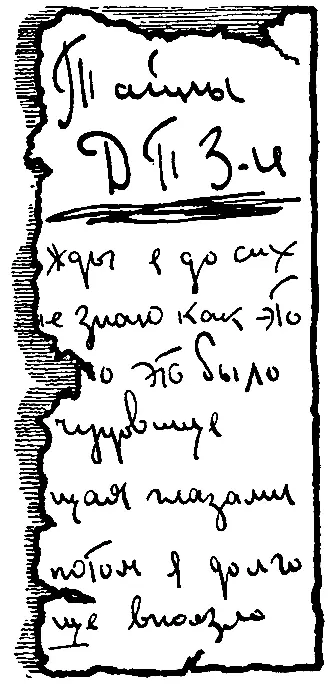 Тайны
ДПЗ-и
жды я до сих
не знаю как это
но это было
чудовище
щая глазами
потом я долго
ще внезпо